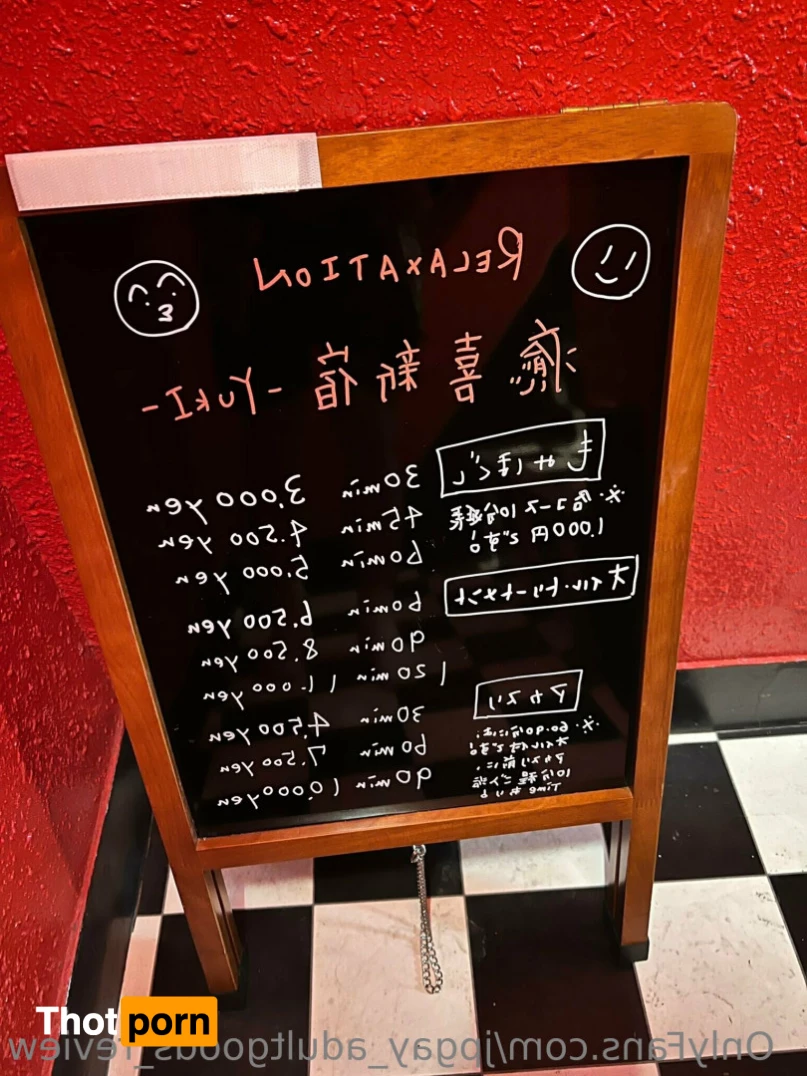 RELAXATION
癒喜新宿 -YUKI-
もみほぐし
※各コース10分延長
1.000円です!
30min 3.000yen
45min 4.500yen
60min 5.000yen
オイル・トリートメント
60min 6.500yen
90min 8.500yen
120min 11.000yen
アカスリ
※60.90分には、
オイル付です!
アカスリ前に、
10分程ご入浴
Timeあり
30min 4.500yen
60min 7.500yen
90min 10.000yen
Thot porn
OnlyFans.com/jpgay_adultgoods_review